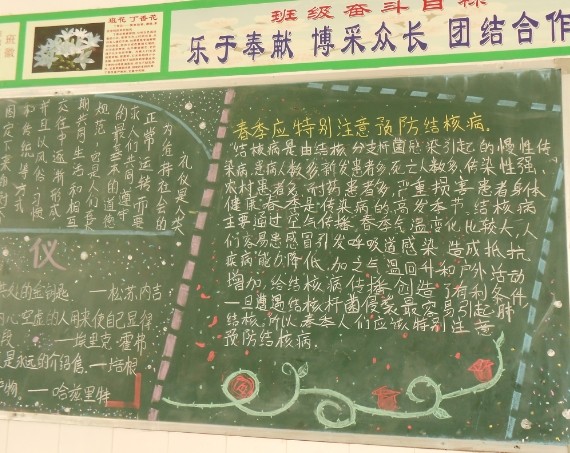 班徽
班花 丁香花
班级奋斗目标
乐于奉献 博采众长 团结合作
礼仪是人类
为维持社会的
正常运转而要
求人们共同遵守
的最基本的道德
规范，它是人们在长
期共同生活和相互
交往中逐渐形成，
并且以风俗、习惯
和传统等方式
固定下来
仪
人的金钥匙 ——松苏内吉
——埃里克·霍弗
是永远的介绍信。——培根
——哈兹里特
春季应特别注意预防结核病.
结核病是由结核分支杆菌感染引起的慢性传
染病,患病人数多,新发患者多,死亡人数多,传染性强、
农村患者多,耐药患者多,严重损害患者身体
健康.春季是传染病的高发季节.结核病
主要通过空气传播.春季气温变化比较大,人
们容易患感冒引发呼吸道感染 造成抵抗
疾病能力降低,加之气温回升和户外活动
增加,给结核病传播创造了有利条件.
一旦遭遇结核杆菌侵袭最容易引起肺
结核.所以春季人们应该特别注意
预防结核病.